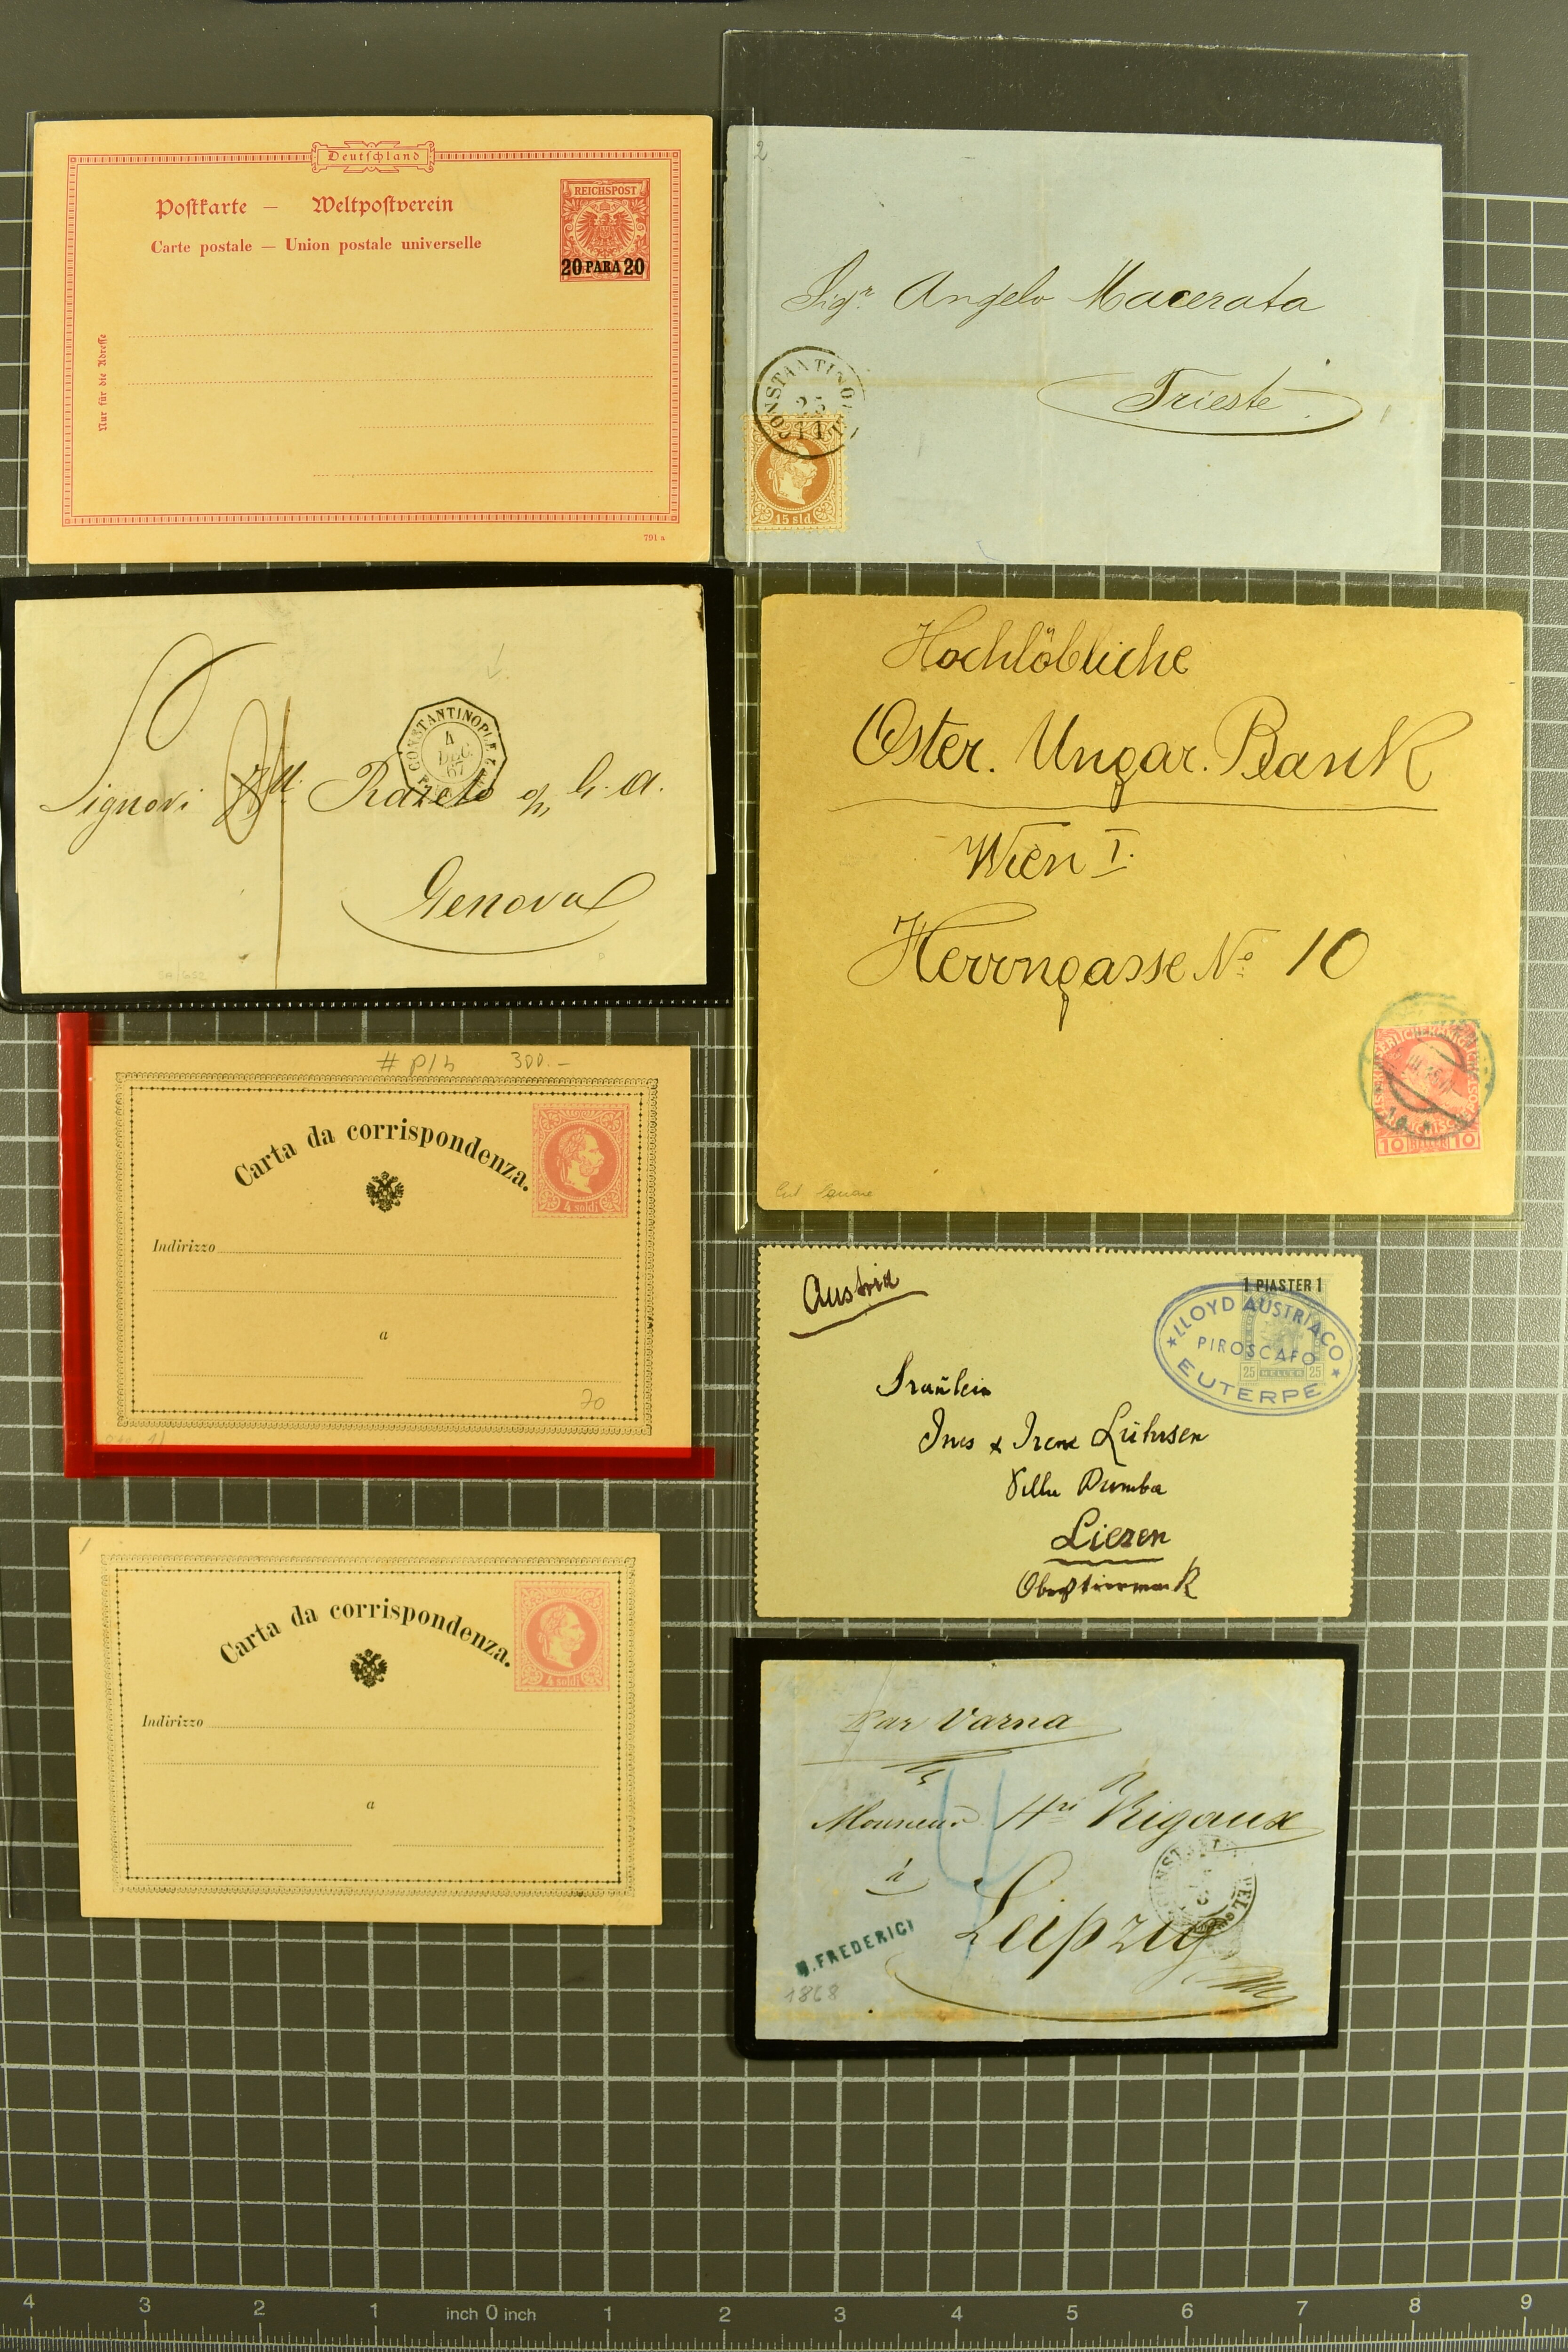 Deutschland
Postkarte — Weltpostverein
Carte postale — Union postale universelle
REICHSPOST
20 PARA 20
Nur für die Adresse
791 a
2
Sigr. Angelo Macerata
Trieste.
CONSTANTINOPEL
11
15 sld.
CONSTANTINOPLE
4
DEC
67
Signori Razeto
Genova
Hochlöbliche
Öster. Ungar. Bank
Wien I.
Herrngasse No 10
10 10
Cut Square
# P/h 300.-
Carta da corrispondenza.
4 soldi
Indirizzo
a
70
Austria
1 PIASTER 1
LLOYD AUSTRIACO
PIROSCAFO
EUTERPE
25 HELLER 25
Fraülein
Ines & Irene Lührsen
Villa Dumba
Liezen
Obersteiermark
1
Carta da corrispondenza.
4 soldi
Indirizzo
a
Par Varna
Monsieur Hri Rigaux
à
Leipzig
FREDERICI
1868
4 3 2 1 inch 0 inch 1 2 3 4 5 6 7 8 9